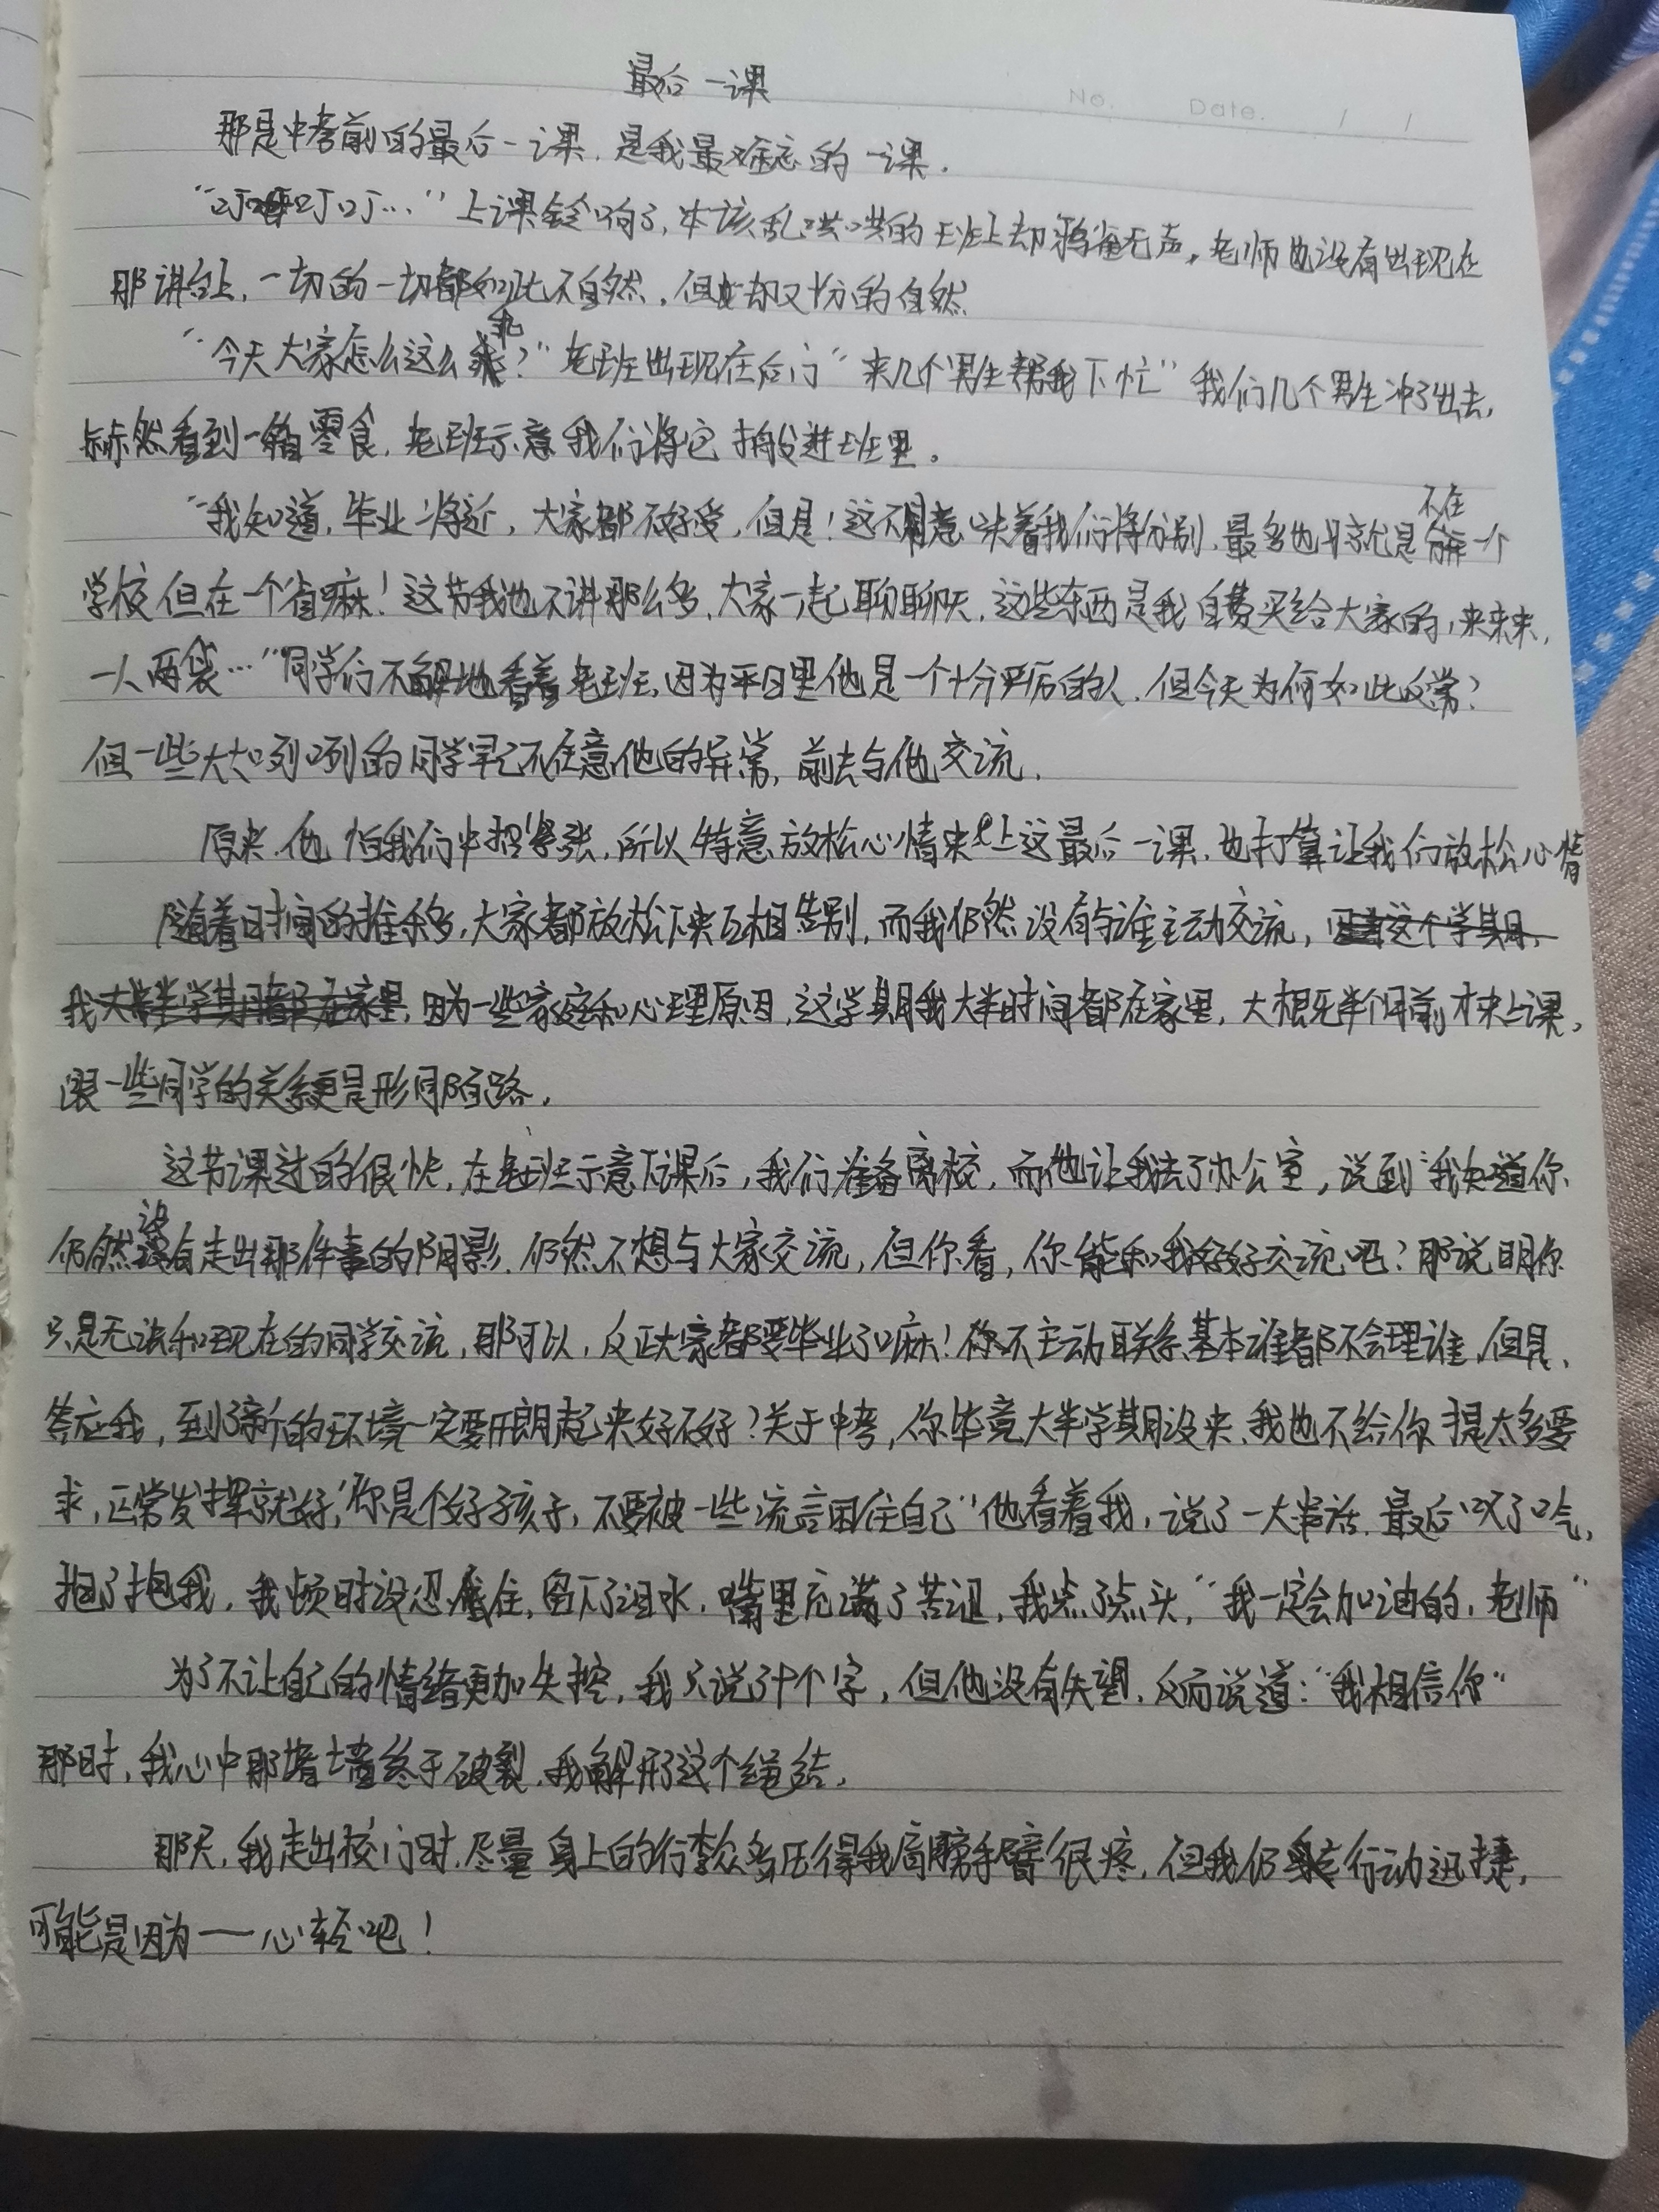 最后一课
No. Date. / /
那是中考前的最后一课,是我最难忘的一课.
“叮叮叮…”上课铃响了,本该乱哄哄的班上却鸦雀无声,老师也没有出现在
那讲台上,一切的一切都如此不自然,但却又十分的自然
“今天大家怎么这么乖?”老班出现在后门“来几个男生帮我下忙”我们几个男生冲了出去,
赫然看到一箱零食,老班示意我们将它搬进班里。
“我知道,毕业将近,大家都不好受,但是!这不意味着我们将分别,最多也就是不在一个
学校但在一个省嘛!这节我也不讲那么多,大家一起聊聊天,这些东西是我自费买给大家的,来来来,
一人两袋…”同学们不解地看着老班,因为平日里他是一个十分严厉的人,但今天为何如此反常?
但一些大大咧咧的同学早已不在意他的异常,前去与他交流.
原来,他怕我们中招紧张,所以特意放松心情来上这最后一课,也打算让我们放松心情
随着时间的推移,大家都放松下来互相告别,而我仍然没有与谁主动交流,
因为一些家庭和心理原因,这学期我大半时间都在家里,大概是半个月前才来上课,
跟一些同学的关系更是形同陌路.
这节课过的很快,在老班示意下课后,我们准备离校,而他让我去了办公室,说到“我知道你
仍然没有走出那件事的阴影,仍然不想与大家交流,但你看,你能和我好好交流吧?那说明你
只是无法和现在的同学交流,那可以,反正大家都要毕业了嘛!你不主动联系,基本谁都不会理谁,但是,
答应我,到了新的环境一定要开朗起来好不好?关于中考,你毕竟大半学期没来,我也不给你提太多要
求,正常发挥就好,你是个好孩子,不要被一些流言困住自己”他看着我,说了一大串话,最后叹了口气,
抱了抱我,我顿时没忍住,留下了泪水,嘴里充满了苦涩,我点了点头,“我一定会加油的,老师”
为了不让自己的情绪更加失控,我只说了十个字,但他没有失望,反而说道:“我相信你”
那时,我心中那堵墙终于破裂,我解开了这个绳结.
那天,我走出校门时,尽量身上的行李众多压得我肩膀手臂很疼,但我仍行动迅捷,
可能是因为——心轻吧!